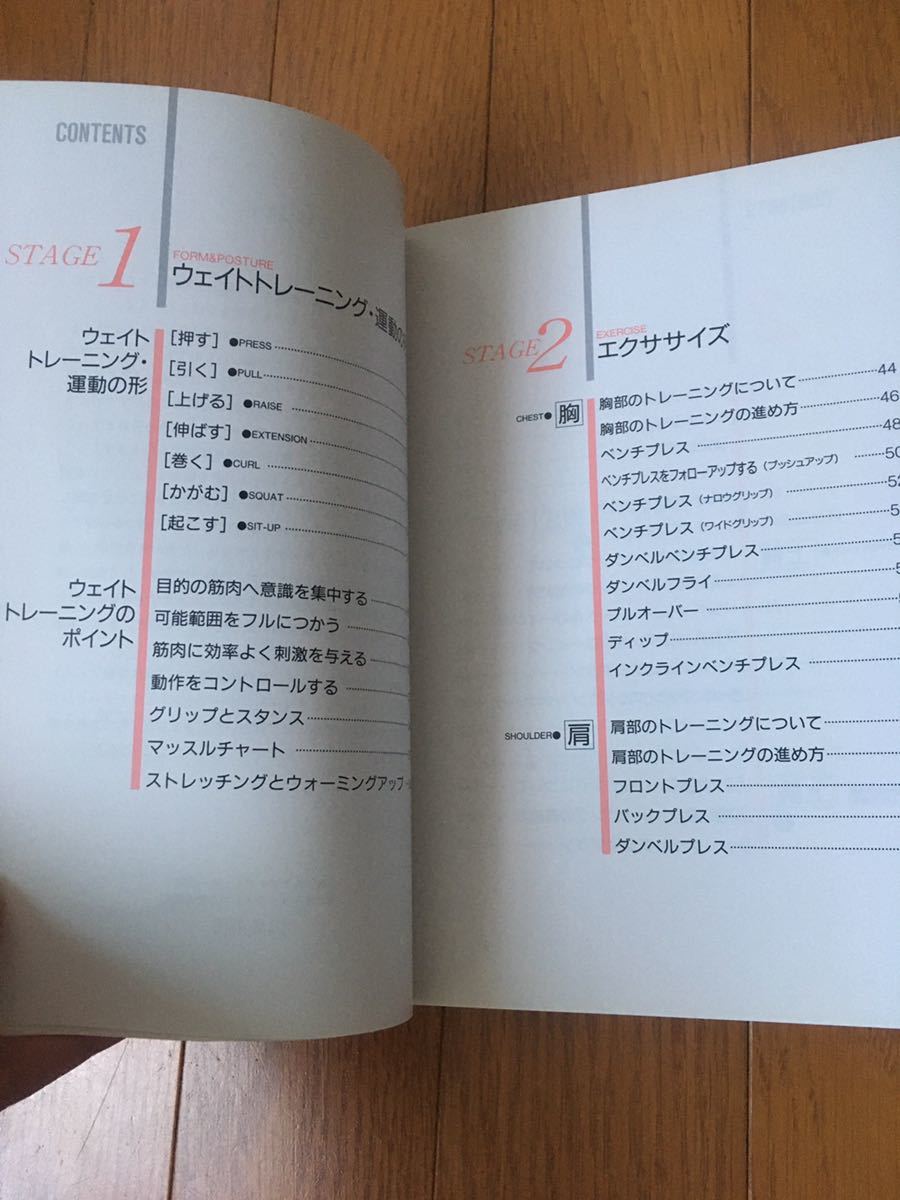 CONTENTS
STAGE 1
FORM&POSTURE
ウェイトトレーニング・運動の
ウェイト
トレーニング・
運動の形
[押す] ●PRESS
[引く] ●PULL
[上げる] ●RAISE
[伸ばす] ●EXTENSION
[巻く] ●CURL
[かがむ] ●SQUAT
[起こす] ●SIT-UP
ウェイト
トレーニングの
ポイント
目的の筋肉へ意識を集中する
可能範囲をフルにつかう
筋肉に効率よく刺激を与える
動作をコントロールする
グリップとスタンス
マッスルチャート
ストレッチングとウォーミングアップ
STAGE 2
EXERCISE
エクササイズ
CHEST● 胸
胸部のトレーニングについて 44
胸部のトレーニングの進め方 46
ベンチプレス 48
ベンチプレスをフォローアップする（プッシュアップ） 50
ベンチプレス（ナロウグリップ） 52
ベンチプレス（ワイドグリップ） 5
ダンベルベンチプレス 5
ダンベルフライ 5
プルオーバー
ディップ
インクラインベンチプレス
SHOULDER● 肩
肩部のトレーニングについて
肩部のトレーニングの進め方
フロントプレス
バックプレス
ダンベルプレス